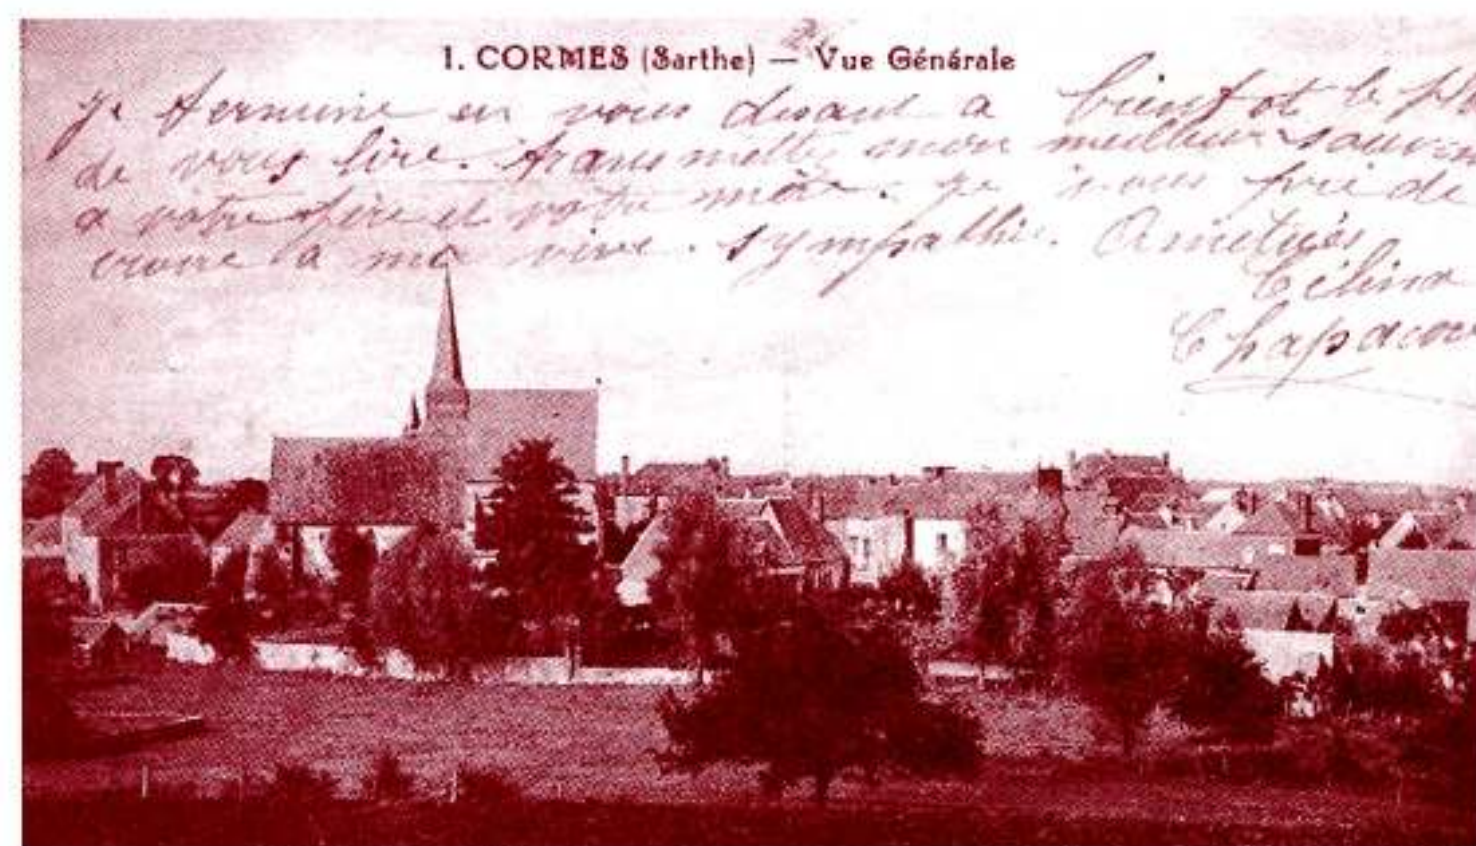 1. CORMES (Sarthe) — Vue Générale
Je termine en vous disant a bientot le pl
de vous lire. transmettez mon meilleur souven
a votre père et votre mère. je vous prie de
croire a ma vive sympathie. Amitiés
Célina